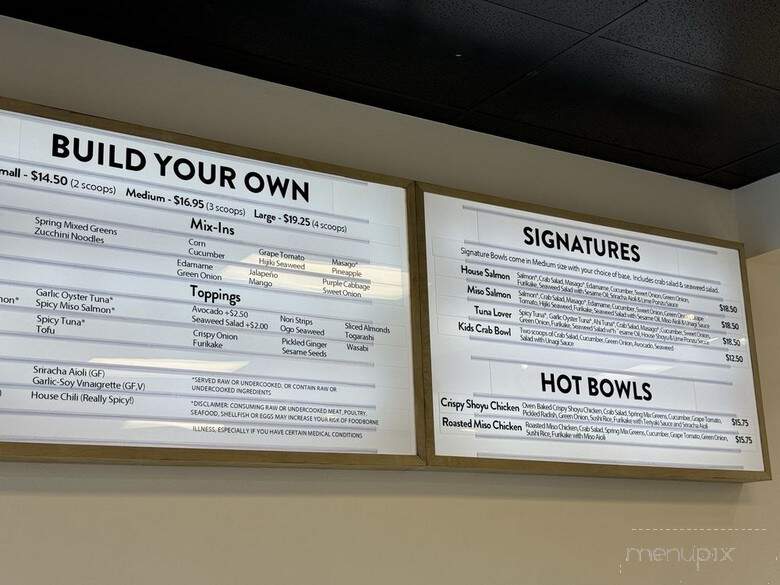 BUILD YOUR OWN
mall - $14.50 (2 scoops) Medium - $16.95 (3 scoops) Large - $19.25 (4 scoops)
Spring Mixed Greens
Zucchini Noodles
Mix-Ins
Corn
Cucumber
Edamame
Green Onion
Grape Tomato
Hijiki Seaweed
Jalapeño
Mango
Masago*
Pineapple
Purple Cabbage
Sweet Onion
Toppings
Garlic Oyster Tuna*
Spicy Miso Salmon*
Spicy Tuna*
Tofu
Avocado +$2.50
Seaweed Salad +$2.00
Crispy Onion
Furikake
Nori Strips
Ogo Seaweed
Pickled Ginger
Sesame Seeds
Sliced Almonds
Togarashi
Wasabi
Sriracha Aioli (GF)
Garlic-Soy Vinaigrette (GF,V)
House Chili (Really Spicy!)
*SERVED RAW OR UNDERCOOKED, OR CONTAIN RAW OR
UNDERCOOKED INGREDIENTS
*DISCLAIMER: CONSUMING RAW OR UNDERCOOKED MEAT, POULTRY,
SEAFOOD, SHELLFISH OR EGGS MAY INCREASE YOUR RISK OF FOODBORNE
ILLNESS, ESPECIALLY IF YOU HAVE CERTAIN MEDICAL CONDITIONS
SIGNATURES
Signature Bowls come in Medium size with your choice of base. Includes crab salad & seaweed salad.
House Salmon Salmon*, Crab Salad, Masago*, Edamame, Cucumber, Sweet Onion, Green Onion,
Furikake, Seaweed Salad with Sesame Oil, Sriracha Aioli & Lime Ponzu Sauce $18.50
Miso Salmon Salmon*, Crab Salad, Masago*, Edamame, Cucumber, Sweet Onion, Green Onion, Grape
Tomato, Hijiki Seaweed, Furikake, Seaweed Salad with Sesame Oil, Miso Aioli & Unagi Sauce $18.50
Tuna Lover Spicy Tuna*, Garlic Oyster Tuna*, Ahi Tuna*, Crab Salad, Masago*, Cucumber, Sweet Onion,
Green Onion, Furikake, Seaweed Salad with Sesame Oil, House Shoyu & Lime Ponzu Sauce $18.50
Kids Crab Bowl Two scoops of Crab Salad, Cucumber, Green Onion, Avocado, Seaweed
Salad with Unagi Sauce $12.50
HOT BOWLS
Crispy Shoyu Chicken Oven Baked Crispy Shoyu Chicken, Crab Salad, Spring Mix Greens, Cucumber, Grape Tomato,
Pickled Radish, Green Onion, Sushi Rice, Furikake with Teriyaki Sauce and Sriracha Aioli $15.75
Roasted Miso Chicken Roasted Miso Chicken, Crab Salad, Spring Mix Greens, Cucumber, Grape Tomato, Green Onion,
Sushi Rice, Furikake with Miso Aioli $15.75
menupix